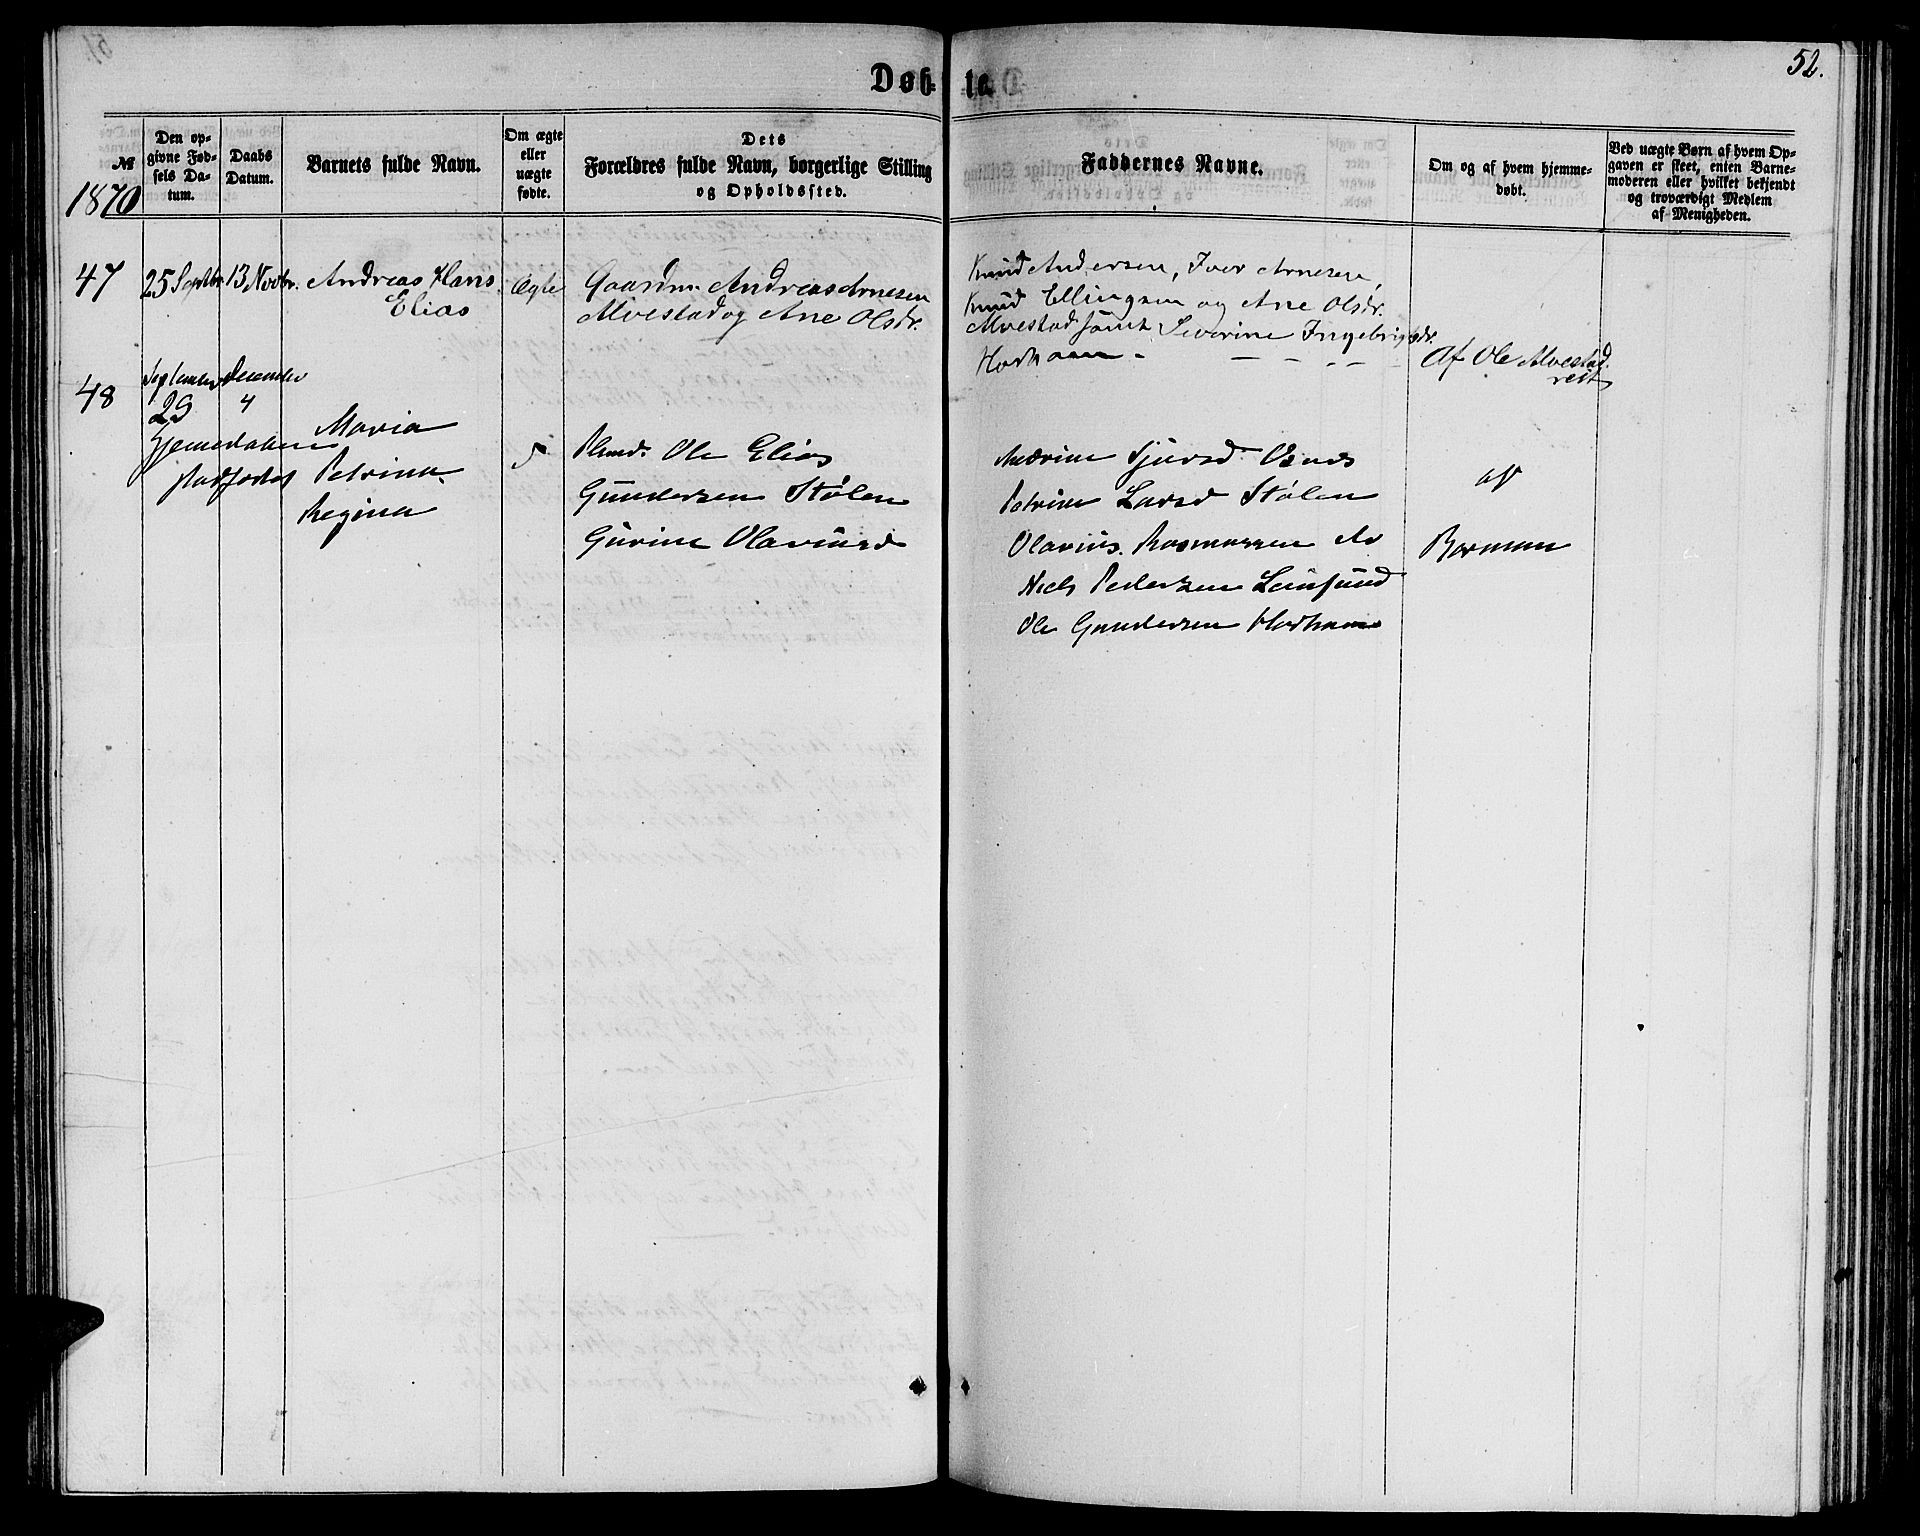 52.
Døbte
№
1870
Den op-
givne Fød-
sels Da-
tum.
Daabs
Datum.
Barnets fulde Navn.
Om ægte
eller
uægte
fødte.
Dets
Forældres fulde Navn, borgerlige Stilling
og Opholdssted.
Faddernes Navne.
Om og af hvem hjemme-
døbt.
Ved uægte Børn af hvem Op-
gaven er skeet, enten Barne-
moderen eller hvilket bekjendt
og troværdigt Medlem
af Menigheden.
47
25 Septbr.
13 Novbr.
Andreas Hans
Elias
Ægte
Gaardm. Andreas Arnesen
Alvestad og Ane Olsdr.
Knud Andersen, Iver Arnesen,
Knud Ellingsen og Ane Olsdr.
Alvestad samt Severine Ingebrigtsdr.
Hovhaven - — - - -
Af Ole Alvestad
48
September
29
Hjemedøben
stadfæstet
December
4
Maria
Petrina
Regina
Ole Elias
Gundersen Stølen
Gurine Olavusd
Sjursd Osnes
Petrine Larsd Stølen
Olavius Rasmussen
Niels Pedersen Leinsund
Ole Gundersen
af